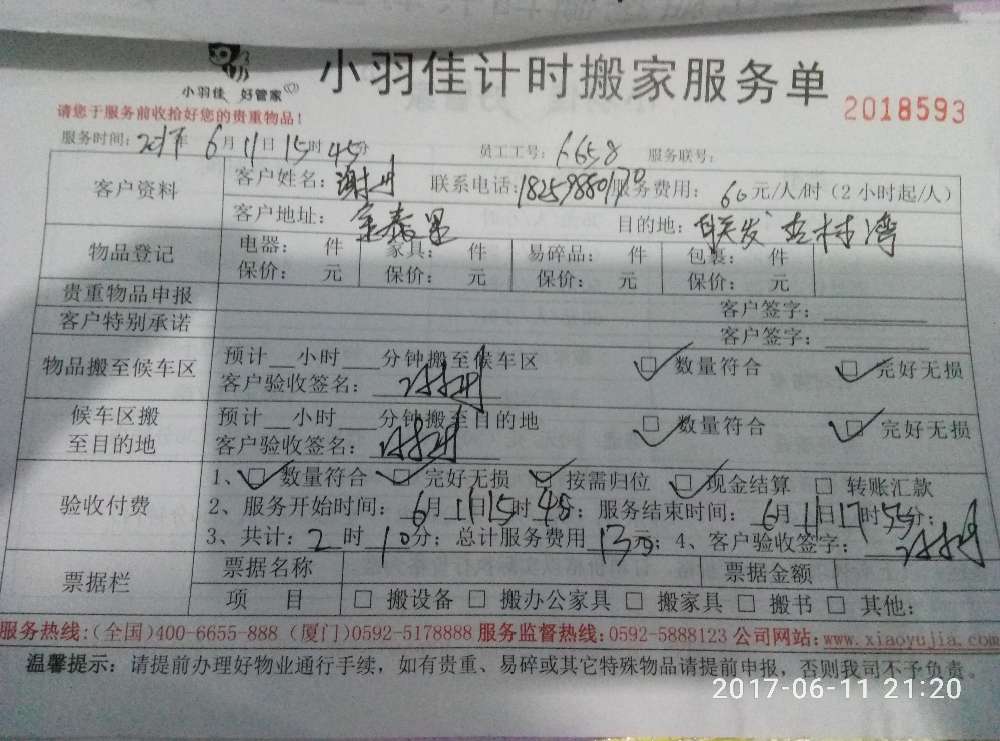 小羽佳 好管家
小羽佳计时搬家服务单
2018593
请您于服务前收拾好您的贵重物品！
服务时间：2017年 6月11日15时45分 员工工号：6658 服务联号：
客户资料 客户姓名：谢 联系电话：18259880170 服务费用：60元/人/时（2小时起/人）
客户地址： 目的地：联发 湾
物品登记 电器： 件 家具： 件 易碎品： 件 包裹： 件
保价： 元 保价： 元 保价： 元 保价： 元
贵重物品申报 客户签字：
客户特别承诺 客户签字：
物品搬至候车区 预计__小时___分钟搬至候车区 □ 数量符合 □ 完好无损
客户验收签名：
候车区搬至目的地 预计__小时___分钟搬至目的地 □ 数量符合 □ 完好无损
客户验收签名：
验收付费 1、□ 数量符合 □ 完好无损 □ 按需归位 □ 现金结算 □ 转账汇款
2、服务开始时间：6月11日15时45；服务结束时间：6月11日17时55分；
3、共计：2时10分；总计服务费用 13元；4、客户验收签字：
票据栏 票据名称 票据金额
项 目 □ 搬设备 □ 搬办公家具 □ 搬家具 □ 搬书 □ 其他：
服务热线：（全国）400-6655-888（厦门）0592-5178888 服务监督热线：0592-5888123 公司网站：www.xiaoyujia.com
温馨提示：请提前办理好物业通行手续，如有贵重、易碎或其它特殊物品请提前申报，否则我司不予负责。
2017-06-11 21:20